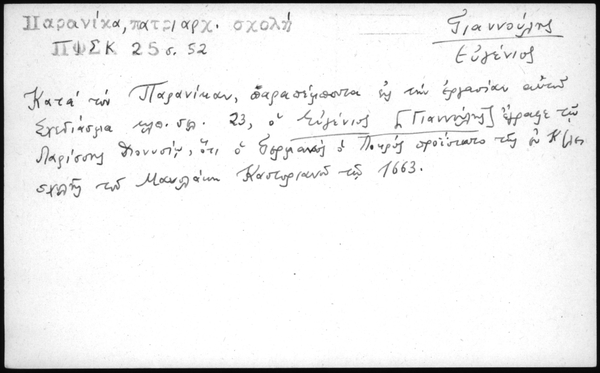 Παρανίκα, πατριαρχ. σχολή
ΠΦΣΚ 25 σ. 52
Γιαννούλης
Εὐγένιος
Κατά τόν Παρανίκαν, παραπέμποντα εἰς τήν ἐργασίαν αὐτοῦ
Σχεδίασμα κλπ. σελ. 23, ὁ Εὐγένιος [Γιαννούλης] ἔγραψε τῷ
Λαρίσσης Διονυσίῳ, ὅτι ὁ Γερμανός ὁ Λοκρός προΐστατο τῆς ἐν Κ/λει
σχολῆς τοῦ Μανολάκη Καστοριανοῦ τῷ 1663.